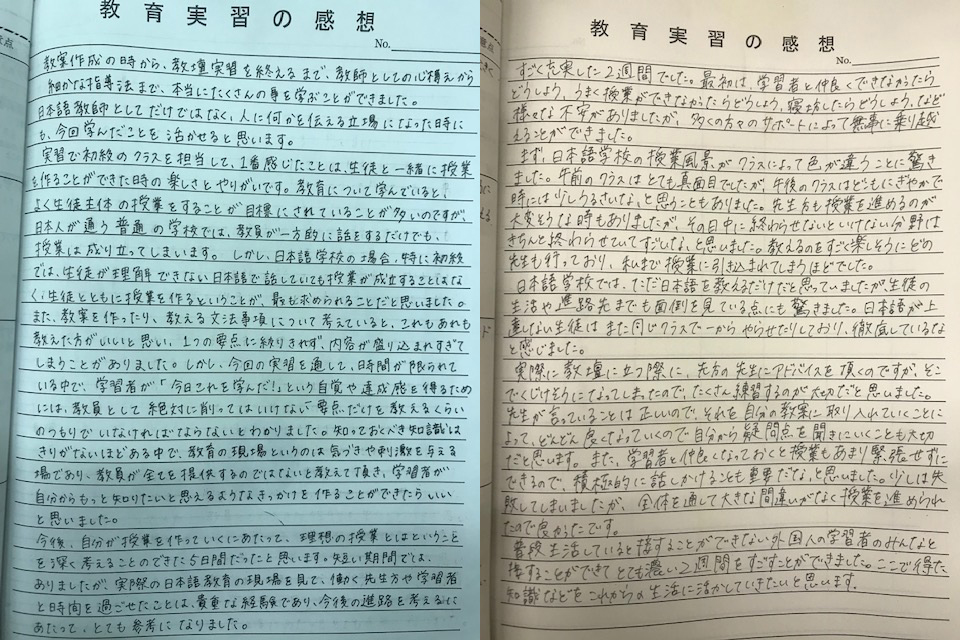 教育実習の感想
No.
教案作成の時から、教壇実習を終えるまで、教師としての心構えから
細かな指導法まで、本当にたくさんの事を学ぶことができました。
日本語教師としてだけではなく、人に何かを伝える立場になった時に
も、今回学んだことを活かせると思います。
実習で初級のクラスを担当して、1番感じたことは、生徒と一緒に授業
を作ることができた時の楽しさとやりがいです。教育について学んでいると、
よく生徒主体の授業をすることが目標にされていることが多いのですが、
日本人が通う普通の学校では、教員が一方的に話をするだけでも、
授業は成り立ってしまいます。しかし、日本語学校の場合、特に初級
では、生徒が理解できない日本語で話していても授業が成立することはな
く、生徒とともに授業を作るということが、最も求められることだと思いました。
また、教案を作ったり、教える文法事項について考えていると、これもあれも
教えた方がいいと思い、1つの要点に絞りきれず、内容が盛り込まれすぎて
しまうことがありました。しかし、今回の実習を通して、日時間が限られて
いる中で、学習者が「今日これを学んだ!」という自覚や達成感を得るため
には、教員として絶対に削ってはいけない要点だけを教えるくらい
のつもりでいなければならないとわかりました。知っておくべき知識は
きりがないほどある中で、教育の現場というのは気づきや刺激を与える
場であり、教員が全てを提供するのではないと教えて頂き、学習者が
自分からもっと知りたいと思えるようなきっかけを作ることができたらいい
と思いました。
今後、自分が授業を作っていくにあたって、理想の授業とはということ
を深く考えることのできた5日間だったと思います。短い期間では、
ありましたが、実際の日本語教育の現場を見て、働く先生方や学習者
と時間を過ごせたことは、貴重な経験であり、今後の進路を考えるに
あたって、とても参考になりました。
教育実習の感想
No.
すごく充実した2週間でした。最初は、学習者と仲良くできなかったら
どうしよう、うまく授業ができなかったらどうしよう、寝坊したらどうしよう、など
様々な不安がありましたが、多くの方々のサポートによって無事に乗り越
えることができました。
まず、日本語学校の授業風景がクラスによって色が違うことに驚き
ました。午前のクラスはとても真面目でしたが、午後のクラスはとてもにぎやかで
時には少しうるさいな、と思うこともありました。先生方も授業を進めるのが
大変そうな時もありましたが、その日中に終わらせないといけない分野は
きちんと終わらせていてすごいな、と思いました。教えるのをすご楽しそうにどの
先生も行っており、私まで授業に引き込まれてしまうほどでした。
日本語学校では、ただ日本語を教えるだけだと思っていましたが、生徒の
生活や進路先までも面倒を見ている点にも驚きました。日本語が上
達しない生徒はまた同じクラスで一からやらせたりしており、徹底しているな
と感じました。
実際に教壇に立つ際に、先方の先生にアドバイスを頂くのですが、そこ
でくじけそうになってしまったので、たくさん練習するのが大切だと思いました。
先生が言っていることは正しいので、それを自分の教案に取り入れていくことに
よって、どんどん良くなっていくので自分から疑問点を聞きにいくことも大切
だと思います。また、学習者と仲良くなっておくと授業もあまり緊張せずに
できるので、積極的に話しかけることも重要だな、と思いました。少しは失
敗してしまいましたが、全体を通して大きな間違いがなく授業を進められ
たので良かったです。
普段生活していると接することができない外国人の学習者のみんなと
接することができてとても濃い2週間をすごすことができました。ここで得た
知識などをこれからの生活に活かしていきたいと思います。